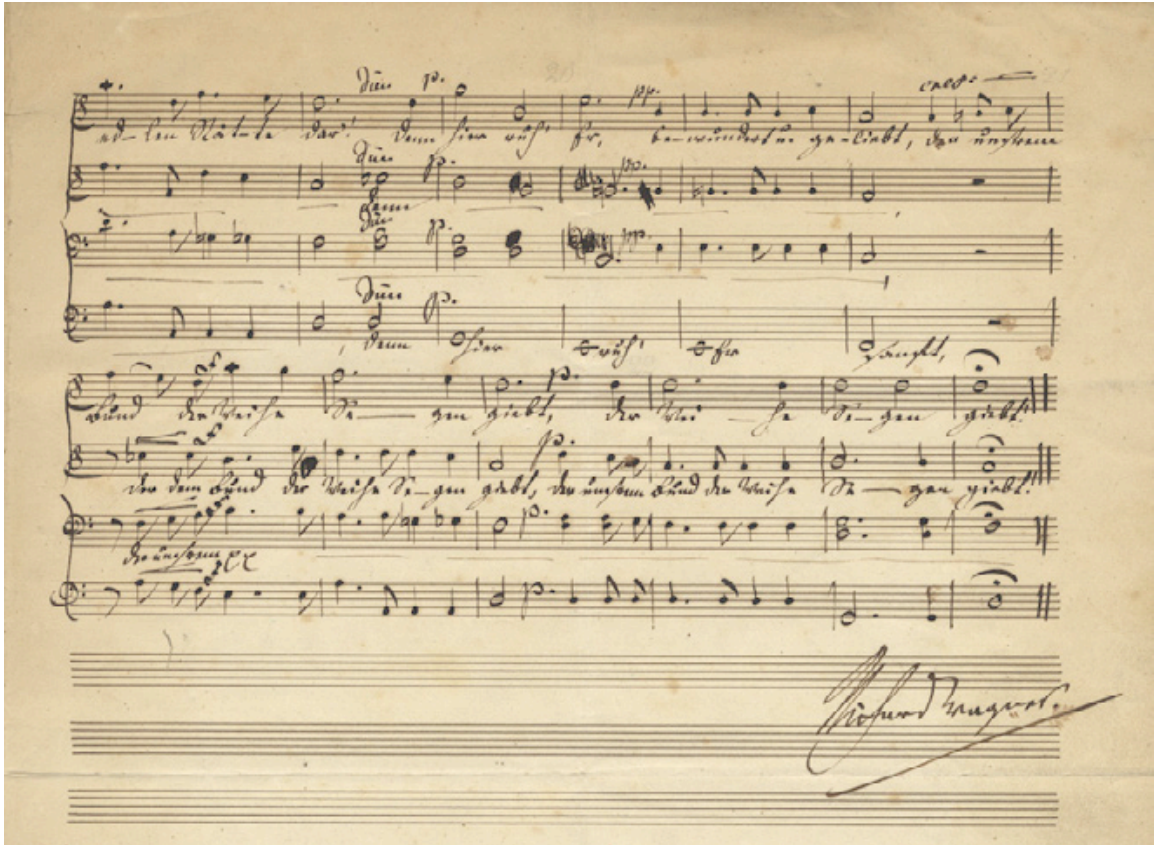 dim. p. pp. cresc.
ed-len Stät-te dar! Denn hier ruh' Er, be-wundert u. ge-liebt, der unsrem
dim. p. pp.
denn
dim. p. pp.
dim. p.
denn hier ruh' Er sanft,
f p.
Bund der Weihe Se-gen giebt, der Wei-he Se-gen giebt!
f p.
der dem Bund der Weihe Se-gen giebt, der unsrem Bund der Weihe Se-gen giebt!
p.
der unsrem
p.
Richard Wagner.